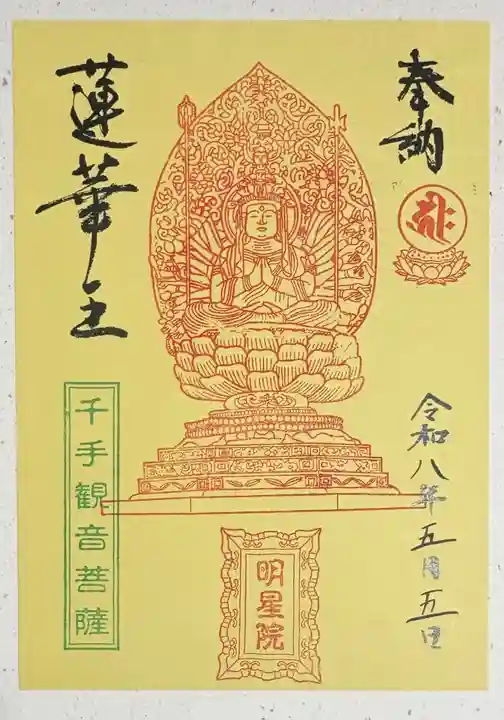 奉納
𑖮𑖿𑖨𑖱𑖾
令和八年五月五日
蓮華王
千手観音菩薩
明星院